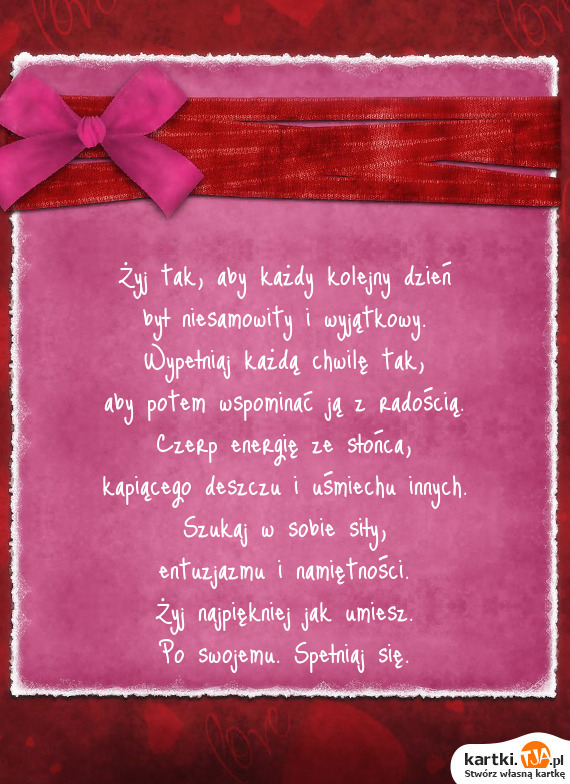 love
love
Żyj tak, aby każdy kolejny dzień
był niesamowity i wyjątkowy.
Wypełniaj każdą chwilę tak,
aby potem wspominać ją z radością.
Czerp energię ze słońca,
kapiącego deszczu i uśmiechu innych.
Szukaj w sobie siły,
entuzjazmu i namiętności.
Żyj najpiękniej jak umiesz.
Po swojemu. Spełniaj się.
love
kartki.TJA.pl
Stwórz własną kartkę